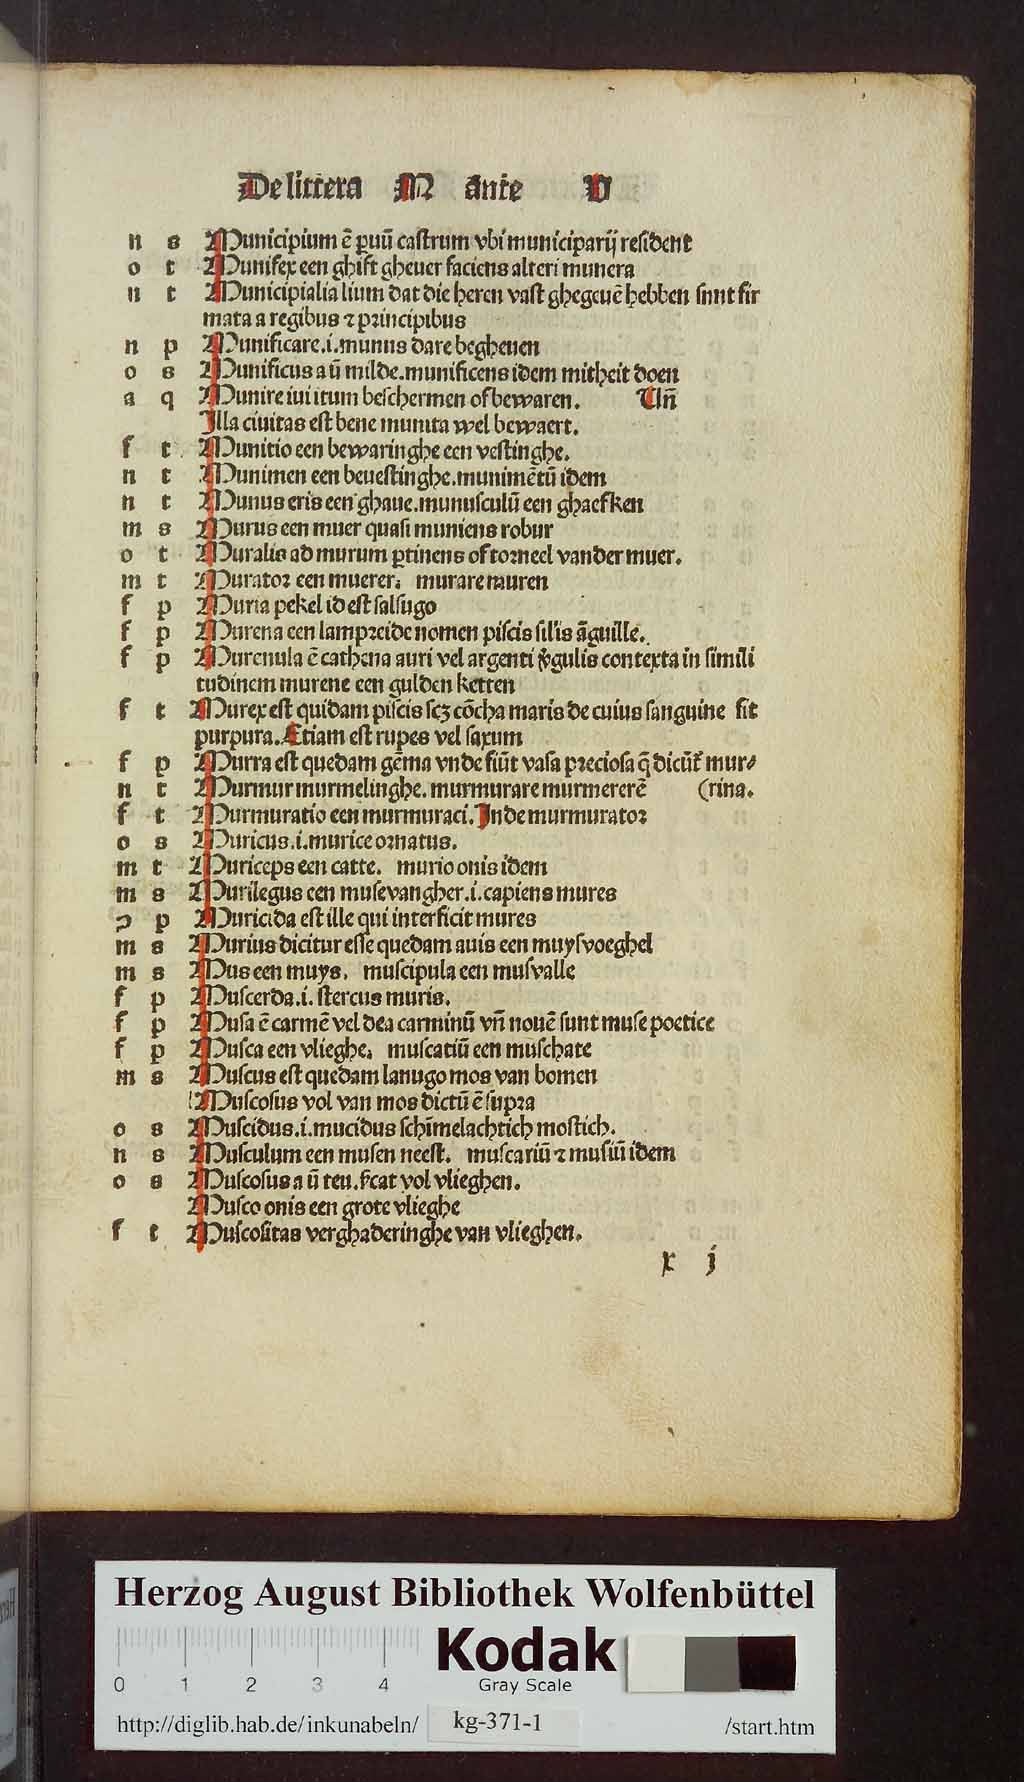 De littera M ante V
n s Municipium ē ꝑuū castrum vbi municiparij resident
o t Munifex een ghift gheuer faciens alteri munera
n t Municipialia lium dat die heren vast ghegeuē hebben sunt fir
mata a regibus ⁊ principibus
n p Munificare.i.munus dare begheuen
o s Munificus a ū milde.munificens idem mitheit doen
a q Munire iui itum beschermen of bewaren. Vn̄
Illa ciuitas est bene munita wel bewaert.
f t Munitio een bewaringhe een vestinghe.
n t Munimen een beuestinghe.munimētū idem
n t Munus eris een ghaue.munusculū een ghaefken
m s Murus een muer quasi muniens robur
o t Muralis ad murum ꝑtinens of torneel van der muer.
m t Murator een muerer. murare muren
f p Muria pekel id est salsugo
f p Murena een lampreide nomen piscis silis āguille.
f p Murenula ē cathena auri vel argenti v̄gulis contexta in simili
tudinem murene een gulden ketten
f t Murex est quidam piscis scꝫ cōcha maris de cuius sanguine fit
purpura.Etiam est rupes vel saxum
f p Murra est quedam gēma vnde fiūt vasa preciosa q̄ dicūt᷑ mur⸗
n t Murmur murmelinghe.murmurare murmererē (rina.
f t Murmuratio een murmuraci.Inde murmurator
o s Muricus.i.murice ornatus.
m t Muriceps een catte. murio onis idem
m s Murilegus een musevangher.i.capiens mures
ꝯ p Muricida est ille qui interficit mures
m s Murius dicitur esse quedam auis een muysvoeghel
m s Mus een muys. muscipula een musvalle
f p Muscerda.i. stercus muris.
f p Musa ē carmē vel dea carminū vn̄ nouē sunt muse poetice
f p Musca een vlieghe. muscatiū een muschate
m s Muscus est quedam lanugo mos van bomen
Muscosus vol van mos dictū ē supra
o s Muscidus.i.mucidus schimelachtich mostich.
n s Musculum een musen neest. muscariū ⁊ musiū idem
o s Muscosus a ū ten.fcat vol vlieghen.
Musco onis een grote vlieghe
f t Muscositas verghaderinghe van vlieghen.
x j
Herzog August Bibliothek Wolfenbüttel
0 1 2 3 4
Kodak
Gray Scale
http://diglib.hab.de/inkunabeln/ kg-371-1 /start.htm